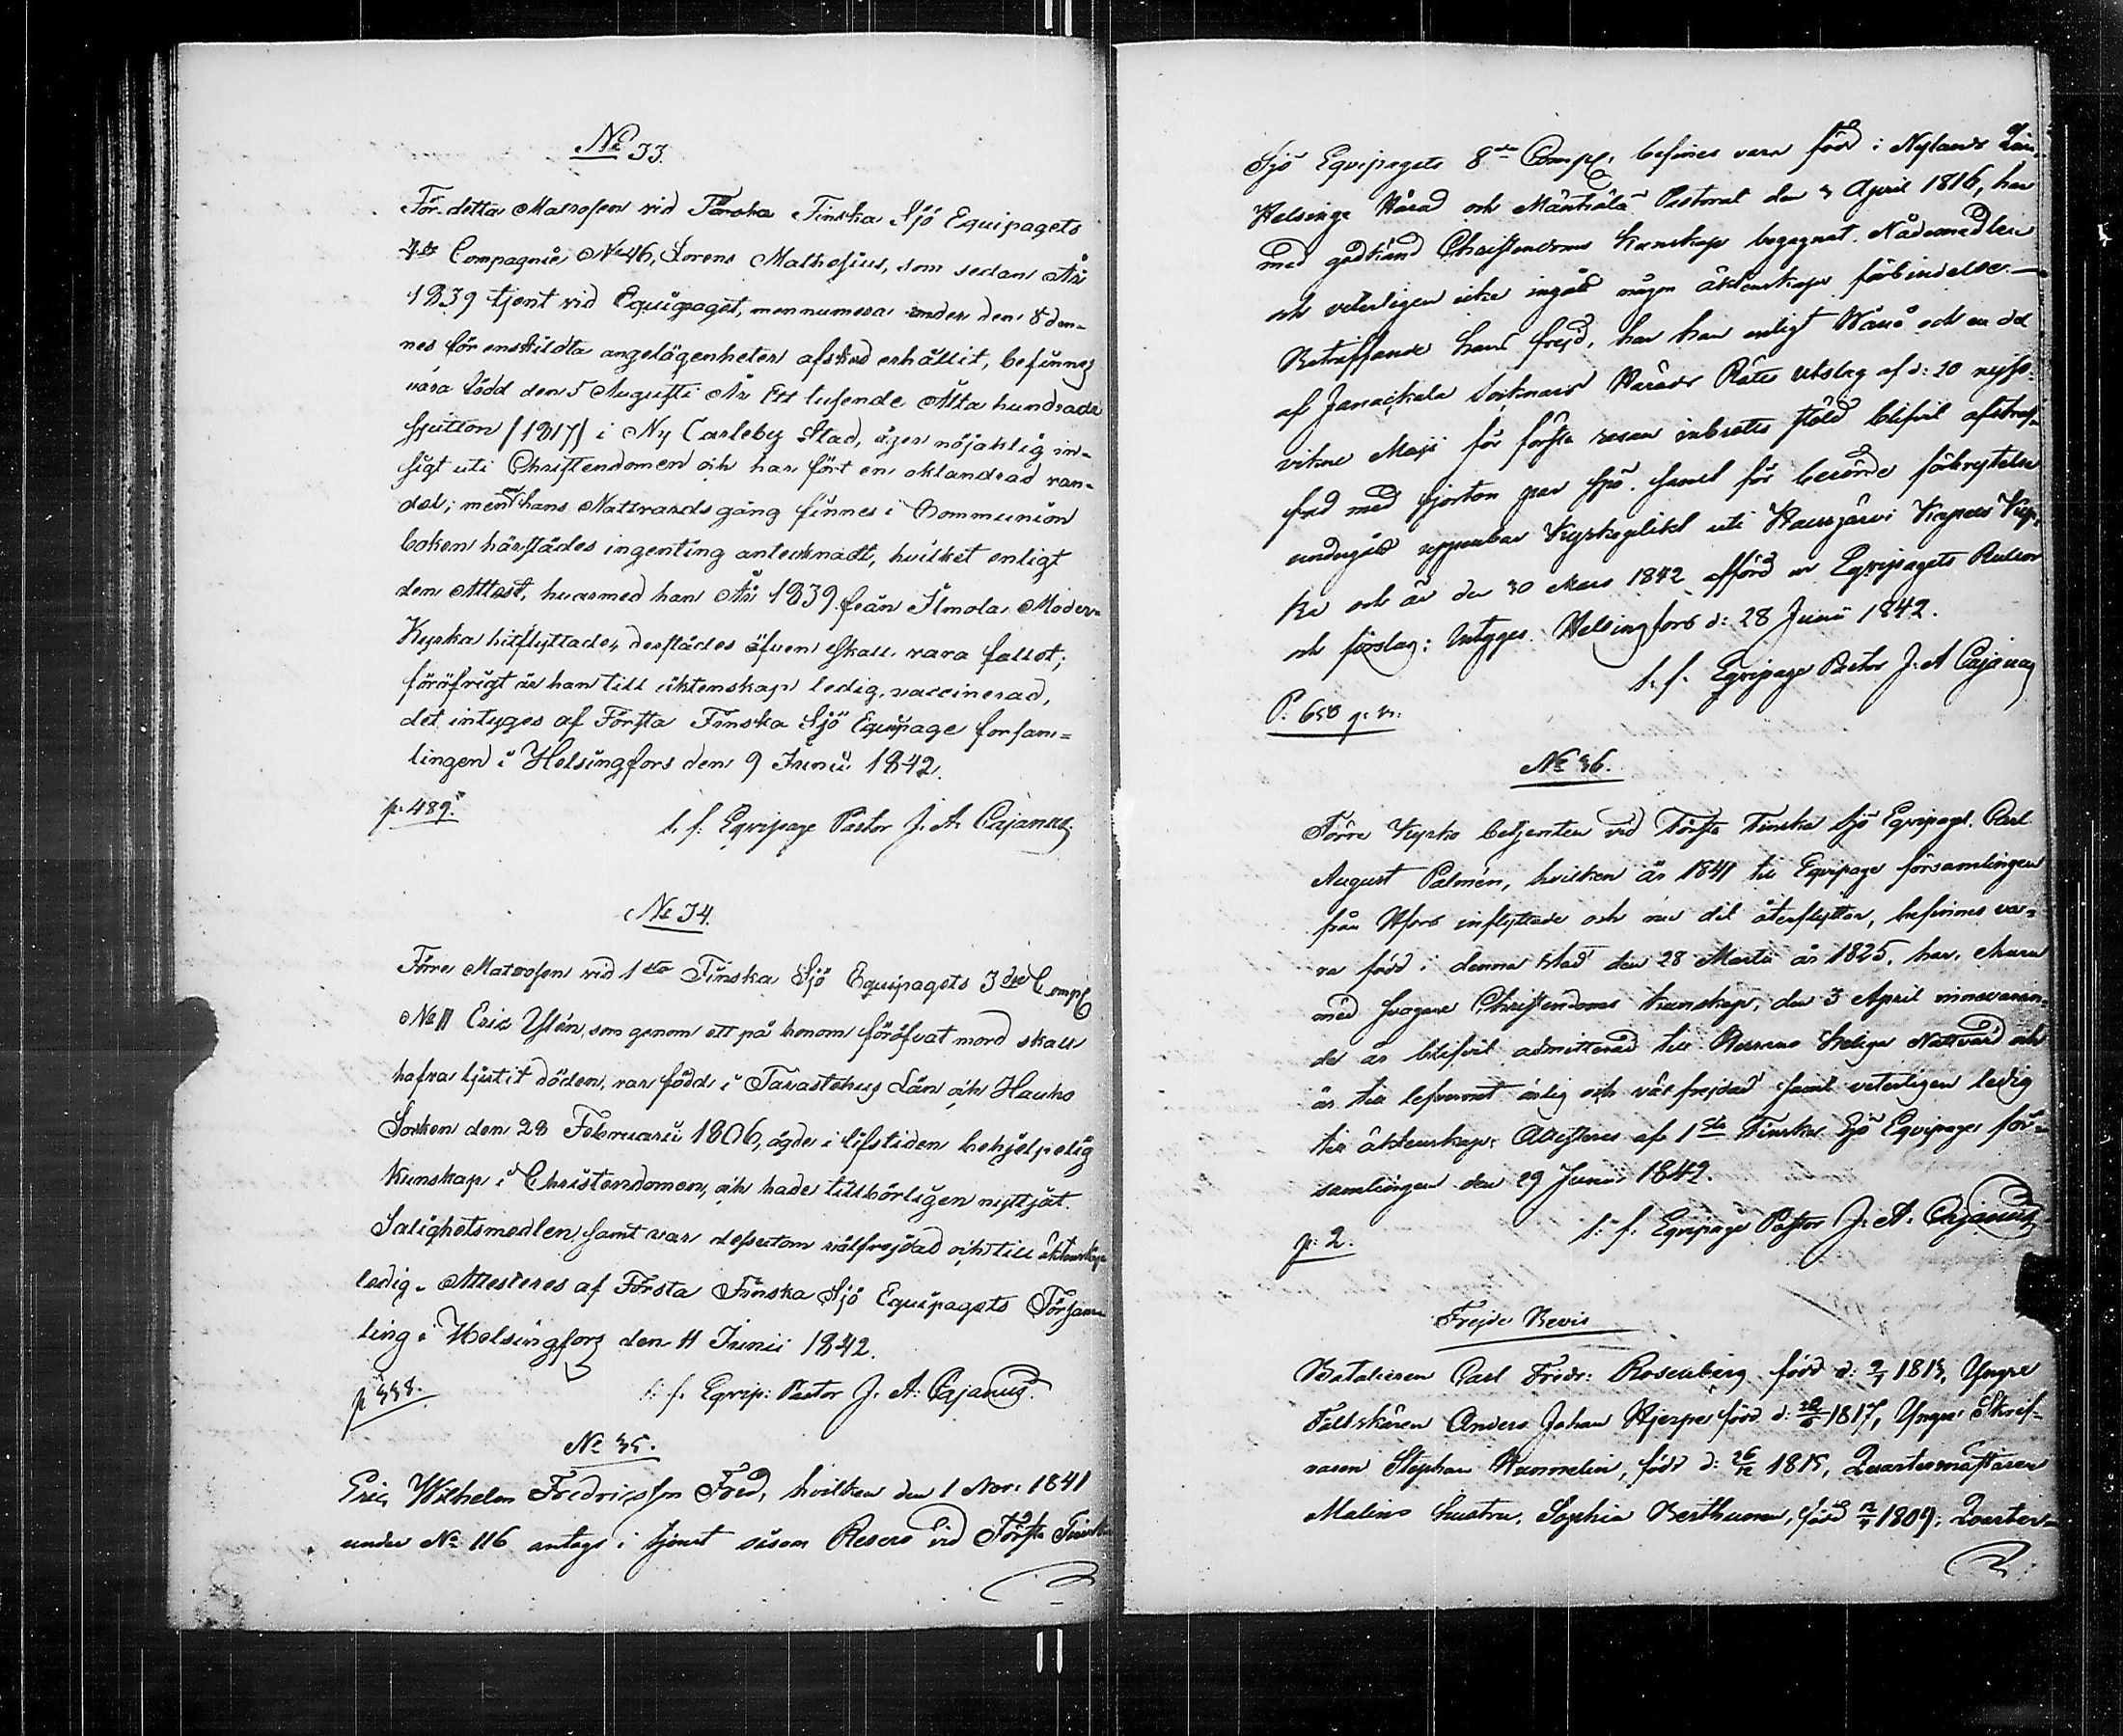 No 33.
För detta Matrosen vid Första Finska Sjö Equipagets
4de Compagnie No 46, Lorens Malhosius, som sedan År
1839 tjent vid Equipaget, men numera under den 8 den-
nes för enskildta angelägenheter afsked erhållit, befinnes
vara född den 5 Augusti År Ett tusende Åtta hundrade
sjutton (1817) i Ny Carleby Stad, äger nöjaktig in-
sigt uti Christendomen och har fört en oklandrad van-
del; men om hans Nattvardsgång finnes i Communion
boken härstädes ingenting antecknadt, hvilket enligt
den Attest, hvarmed han År 1839 från Ilmola Moder-
Kyrka hitflyttade, derstädes äfven skall vara fallet;
föröfrigt är han till äktenskap ledig, vaccinerad,
det intygas af Första Finska Sjö Equipage försam-
lingen i Helsingfors den 9 Junii 1842.
p. 489.
t. f. Eqvipage Pastor J. A. Cajanus
No 34.
Förre Matrosen vid 1sta Finska Sjö Equipagets 3dje Comp.
No 11 Eric Ylén, som genom ett på honom föröfvat mord skall
hafva ljutit döden, var född i Tavastehus Län och Hauho
Socken den 28 Februarii 1806, ägde i lifstiden behjelpelig
kunskap i Christendomen, och hade tillbörligen nyttjat
Salighetsmedlen samt var dessutom välfrejdad och till äktenskap
ledig. Attesteres af Första Finska Sjö Equipagets Församling
ling i Helsingfors den 11 Junii 1842.
p 338.
t. f. Eqvip: Pastor J. A. Cajanus.
No 35.
Eric Wilhelm Fredricsson Fred, hvilken den 1 Nov: 1841
under No 116 antogs i tjenst såsom Reserv vid Första Finska
Sjö Eqvipagets 8de Comp. befines vara född i Nylands Län,
Helsinge Härad och Mäntsälä Pastorat den 3 April 1816, har
med godkänd Christendoms kunskap begagnat Nådemedlen
och veterligen icke ingått någon äktenskaps förbindelse.—
Beträffande hans frejd, har han enligt Wånå och en del
af Janackala Socknars Härads Rätts Utslag af d: 20 nyss-
vikne Maji för första resan inbrotts stöld blifvit afstraf-
fad med fjorton par spö samt för berörde förbrytelse
undergått uppenbar Kyrkoplikt uti Hausjärvi Kapells Kyr-
ka och är den 30 Mars 1842 afförd ur Eqvipagets Rullor
och förslag; Intygas Helsingfors d: 28 Junii 1842.
t. f. Eqvipage Pastor J. A Cajanus
P. 658 q. v.
No 36.
Förre Kyrko betjenten vid Första Finska Sjö Eqvipaget Carl
August Palmén, hvilken år 1841 till Eqvipage församlingen
från Hfors inflyttade och nu dit återflyttar, befinnes va-
ra född i denna Stad den 28 Martii år 1825, har, ehuru
med svagare Christendoms kunskap, den 3 April innevaran-
de år blifvit admitterad till Herrans Heliga Nattvard och
är till lefvernet ärlig och välfrejdad samt veterligen ledig
till äktenskap. Attesteres af 1sta Finska Sjö Eqvipage för-
samlingen den 29 Junii 1842.
t. f. Eqvipage Pastor J. A. Cajanus
p: 2.
Frejde Bevis
Bataljeren Carl Fredr: Rosenberg född d: 1813, Yngre
Fältskären Anders Johan Hjerpe född d: 1817, Yngre Skrif-
varen Stephan Hummelin, född d: 26/12 1815, Quartersmästaren
Malins hustru, Sophia Berthuman, född 1809; Quarters-